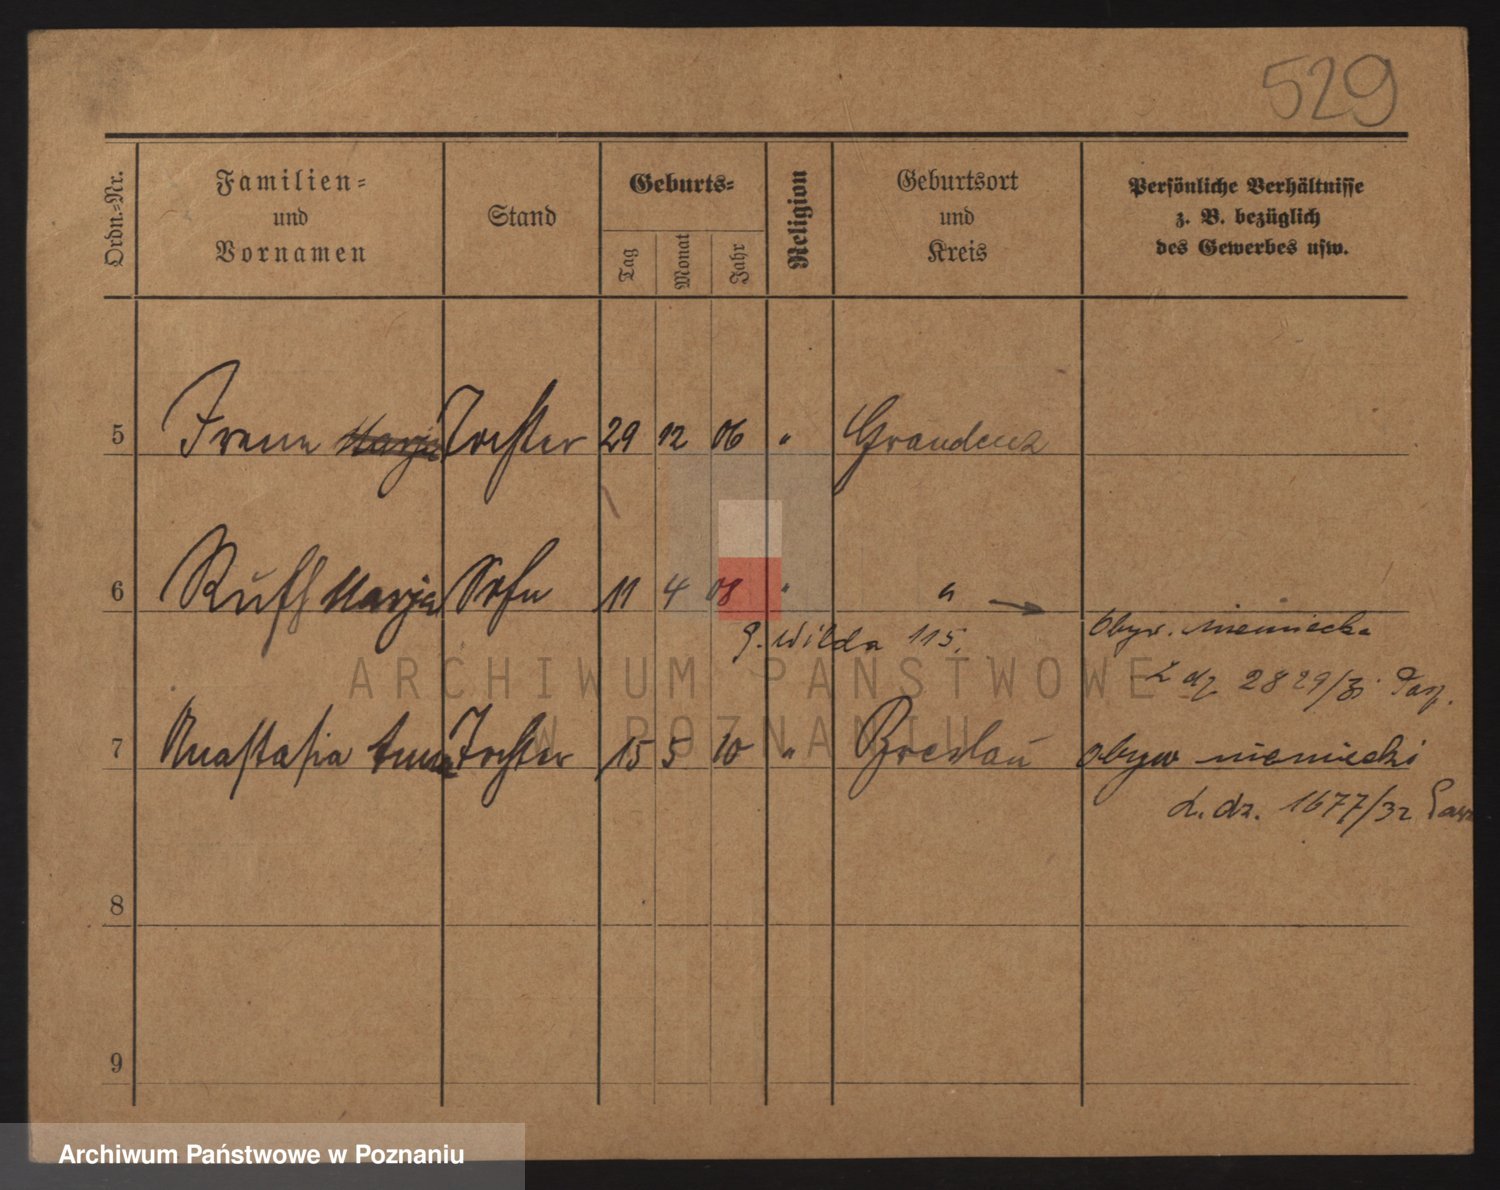 529
Ordn.-Nr.
Familien-
und
Vornamen
Stand
Geburts-
Tag
Monat
Jahr
Religion
Geburtsort
und
Kreis
Persönliche Verhältnisse
z. B. bezüglich
des Gewerbes usw.
5 Irene Marja Tochter 29 12 06 " Graudenz
6 Ruth Marja 11 4 08 " "
G. Wilda 115. Obyw. niemiecka
L dz 2829/31 Pasz.
7 Anastasia Anna Tochter 15 5 10 " Breslau obyw niemiecki
L. dz. 1677/32 Pasz
8
9
ARCHIWUM PAŃSTWOWE
W POZNANIU
Archiwum Państwowe w Poznaniu